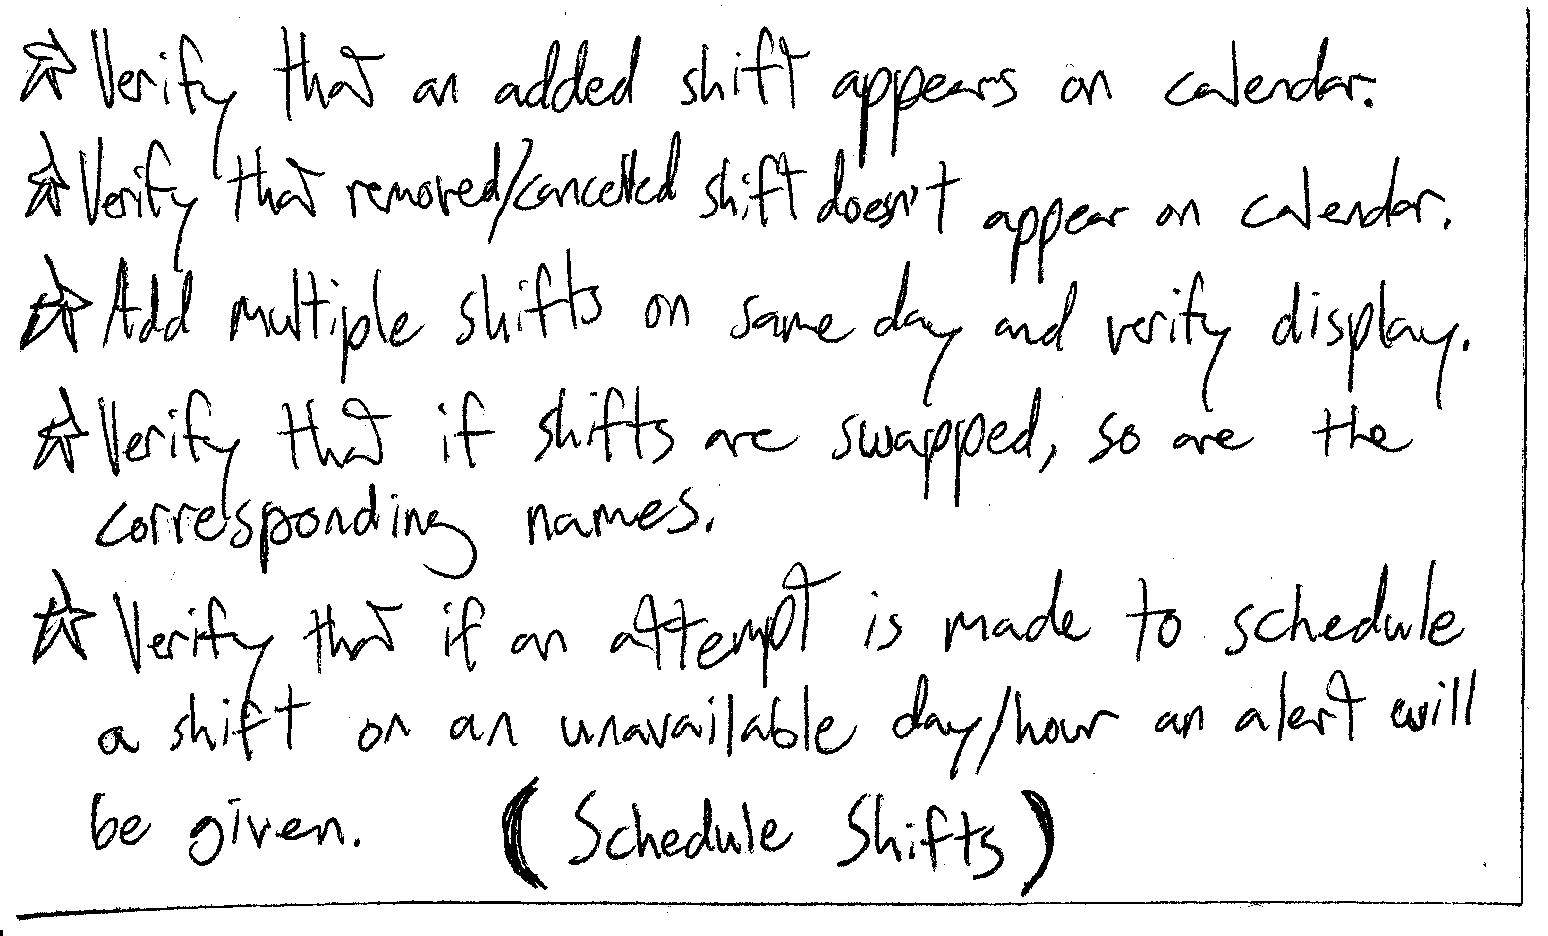 ☆ Verify that an added shift appears on calendar.
☆ Verify that removed/cancelled shift doesn't appear on calendar.
☆ Add multiple shifts on same day and verify display.
☆ Verify that if shifts are swapped, so are the
corresponding names.
☆ Verify that if an attempt is made to schedule
a shift on an unavailable day/hour an alert will
be given. (Schedule Shifts)